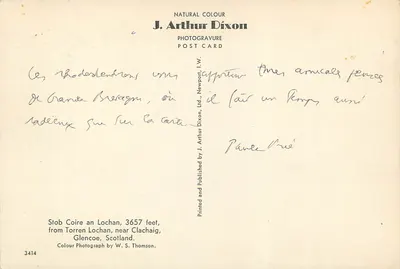 NATURAL COLOUR
J. Arthur Dixon
PHOTOGRAVURE
POST CARD
Ces rhododendrons vous apportent mes amicales pensées
de Grande Bretagne, où il fait un temps aussi
radieux que sur la carte
Printed and Published by J. Arthur Dixon, Ltd., Newport, I.W.
Stob Coire an Lochan, 3657 feet,
from Torren Lochan, near Clachaig,
Glencoe, Scotland.
Colour Photograph by W. S. Thomson.
2414